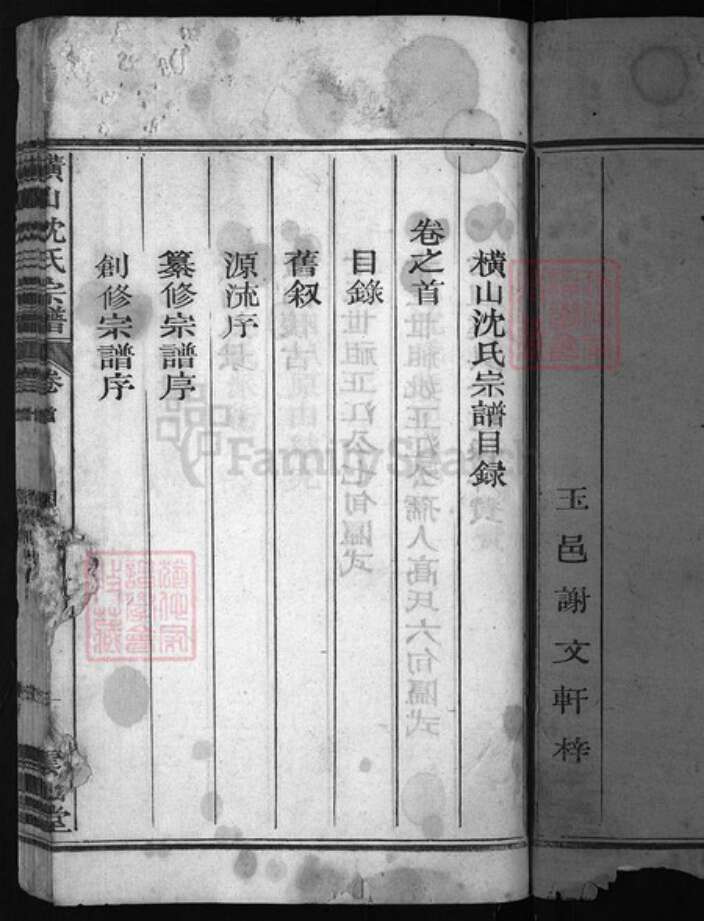 玉邑謝文軒梓
橫山沈氏宗譜目録
卷之首
目錄
舊叙
源流序
纂修宗譜序
創修宗譜序
橫山沈氏宗譜
卷首
FamilySearch